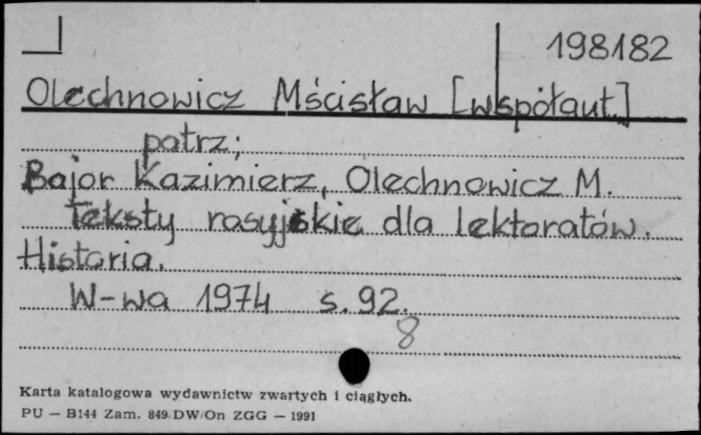 198182
Olechnowicz Mścisław [współaut.]
patrz;
Bajor Kazimierz, Olechnowicz M.
Teksty rosyjskie dla lektoratów.
Historia.
W-wa 1974 s. 92.
8
Karta katalogowa wydawnictw zwartych i ciągłych.
PU — B144 Zam. 849 DW/On ZGG — 1991